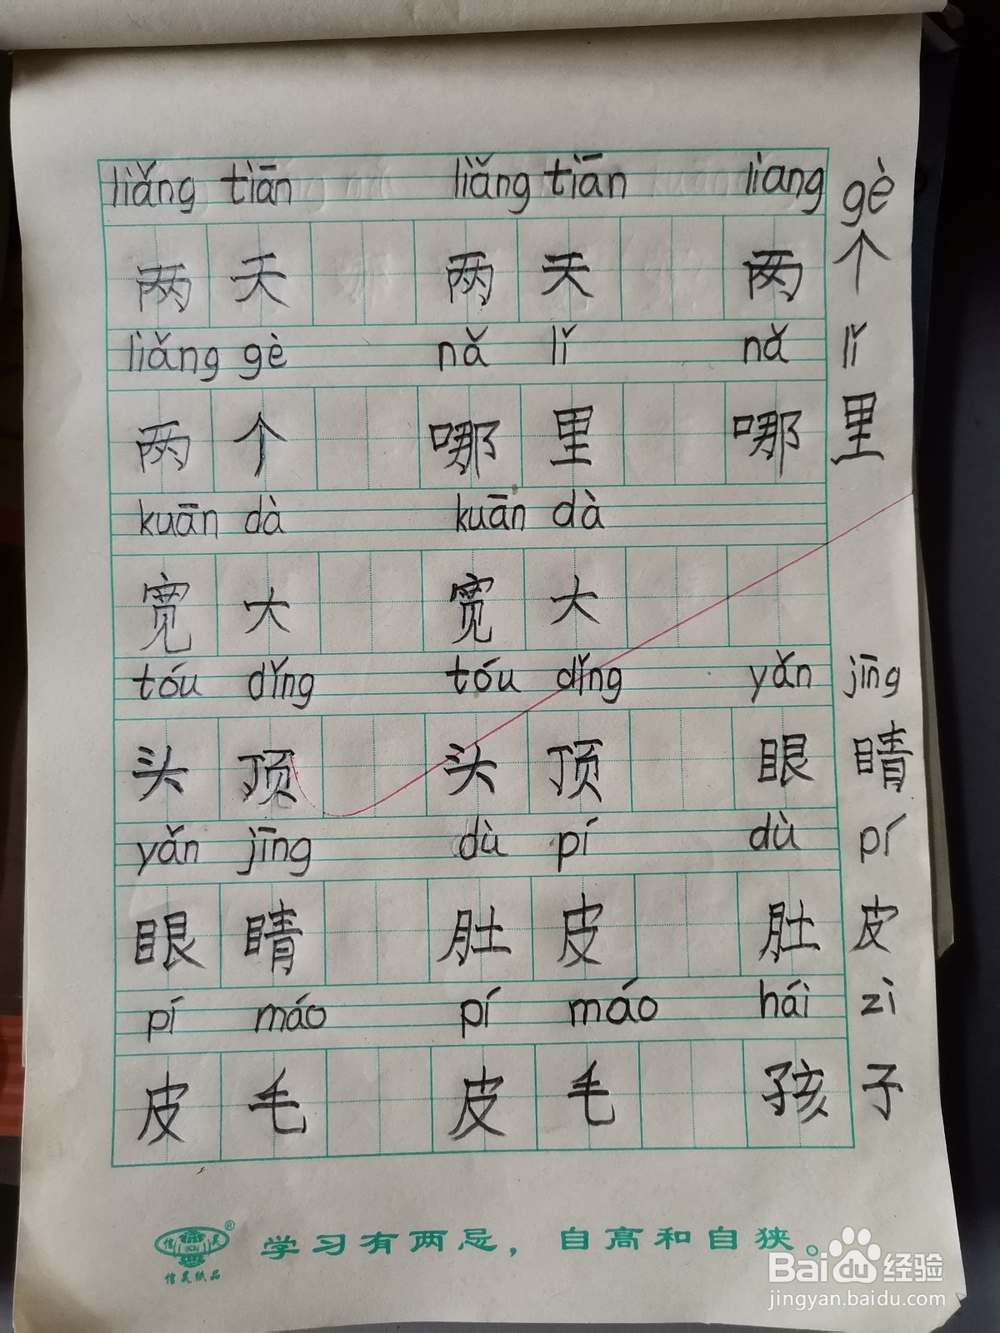 liǎng tiān liǎng tiān liang gè
两天 两天 两个
liǎng gè nǎ lǐ nǎ lǐ
两个 哪里 哪里
kuān dà kuān dà
宽大 宽大
tóu dǐng tóu dǐng yǎn jīng
头顶 头顶 眼睛
yǎn jīng dù pí dù pí
眼睛 肚皮 肚皮
pí máo pí máo hái zi
皮毛 皮毛 孩子
信灵
信灵纸品
学习有两忌，自高和自狭。
Baidu经验
jingyan.baidu.com